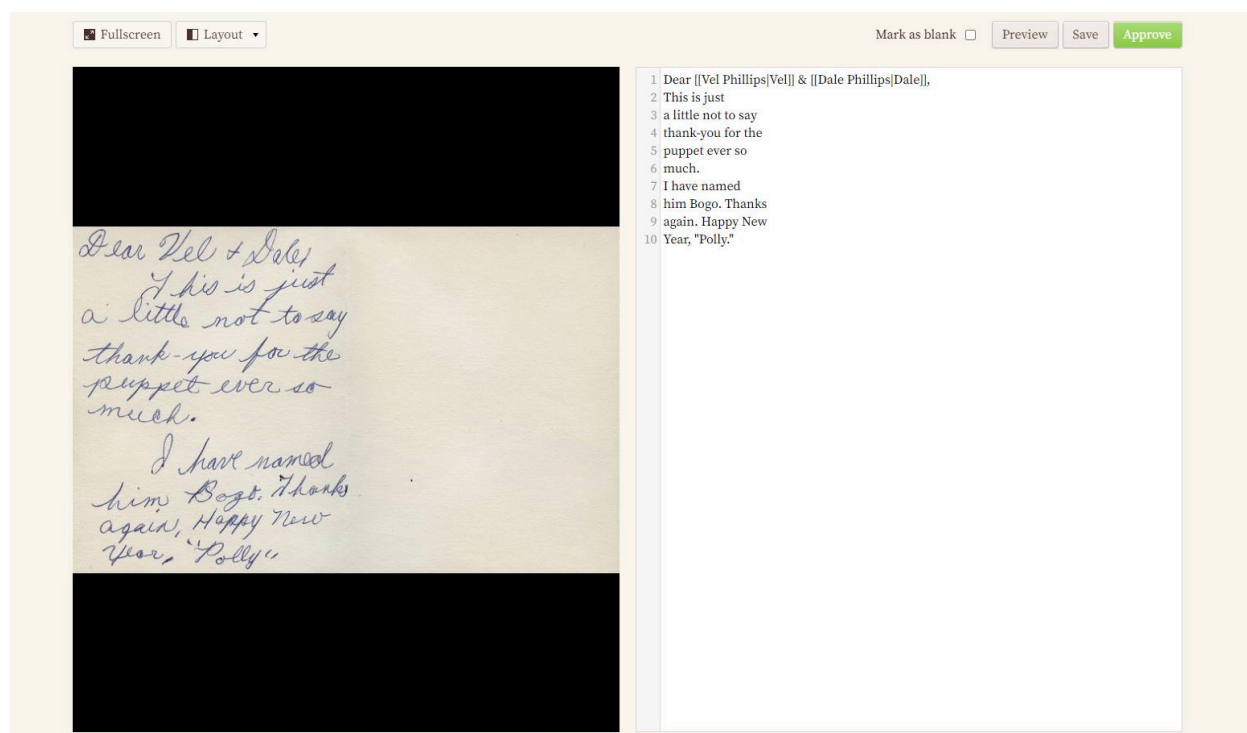 Fullscreen
Layout
Mark as blank
Preview
Save
Approve
Dear Vel + Dale,
This is just
a little not to say
thank-you for the
puppet ever so
much.
I have named
him Bogo. Thanks
again, Happy New
Year, "Polly"
1 Dear [[Vel Phillips|Vel]] & [[Dale Phillips|Dale]],
2 This is just
3 a little not to say
4 thank-you for the
5 puppet ever so
6 much.
7 I have named
8 him Bogo. Thanks
9 again. Happy New
10 Year, "Polly."